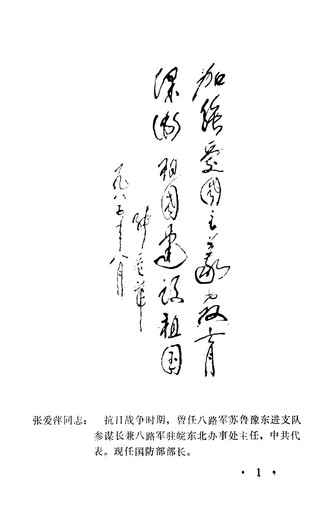 加強爱国主义教育
保衛祖国建设祖国
张爱萍
一九八五年八月
张爱萍同志： 抗日战争时期，曾任八路军苏鲁豫东进支队
参谋长兼八路军驻皖东北办事处主任，中共代
表。现任国防部部长。
· 1 ·